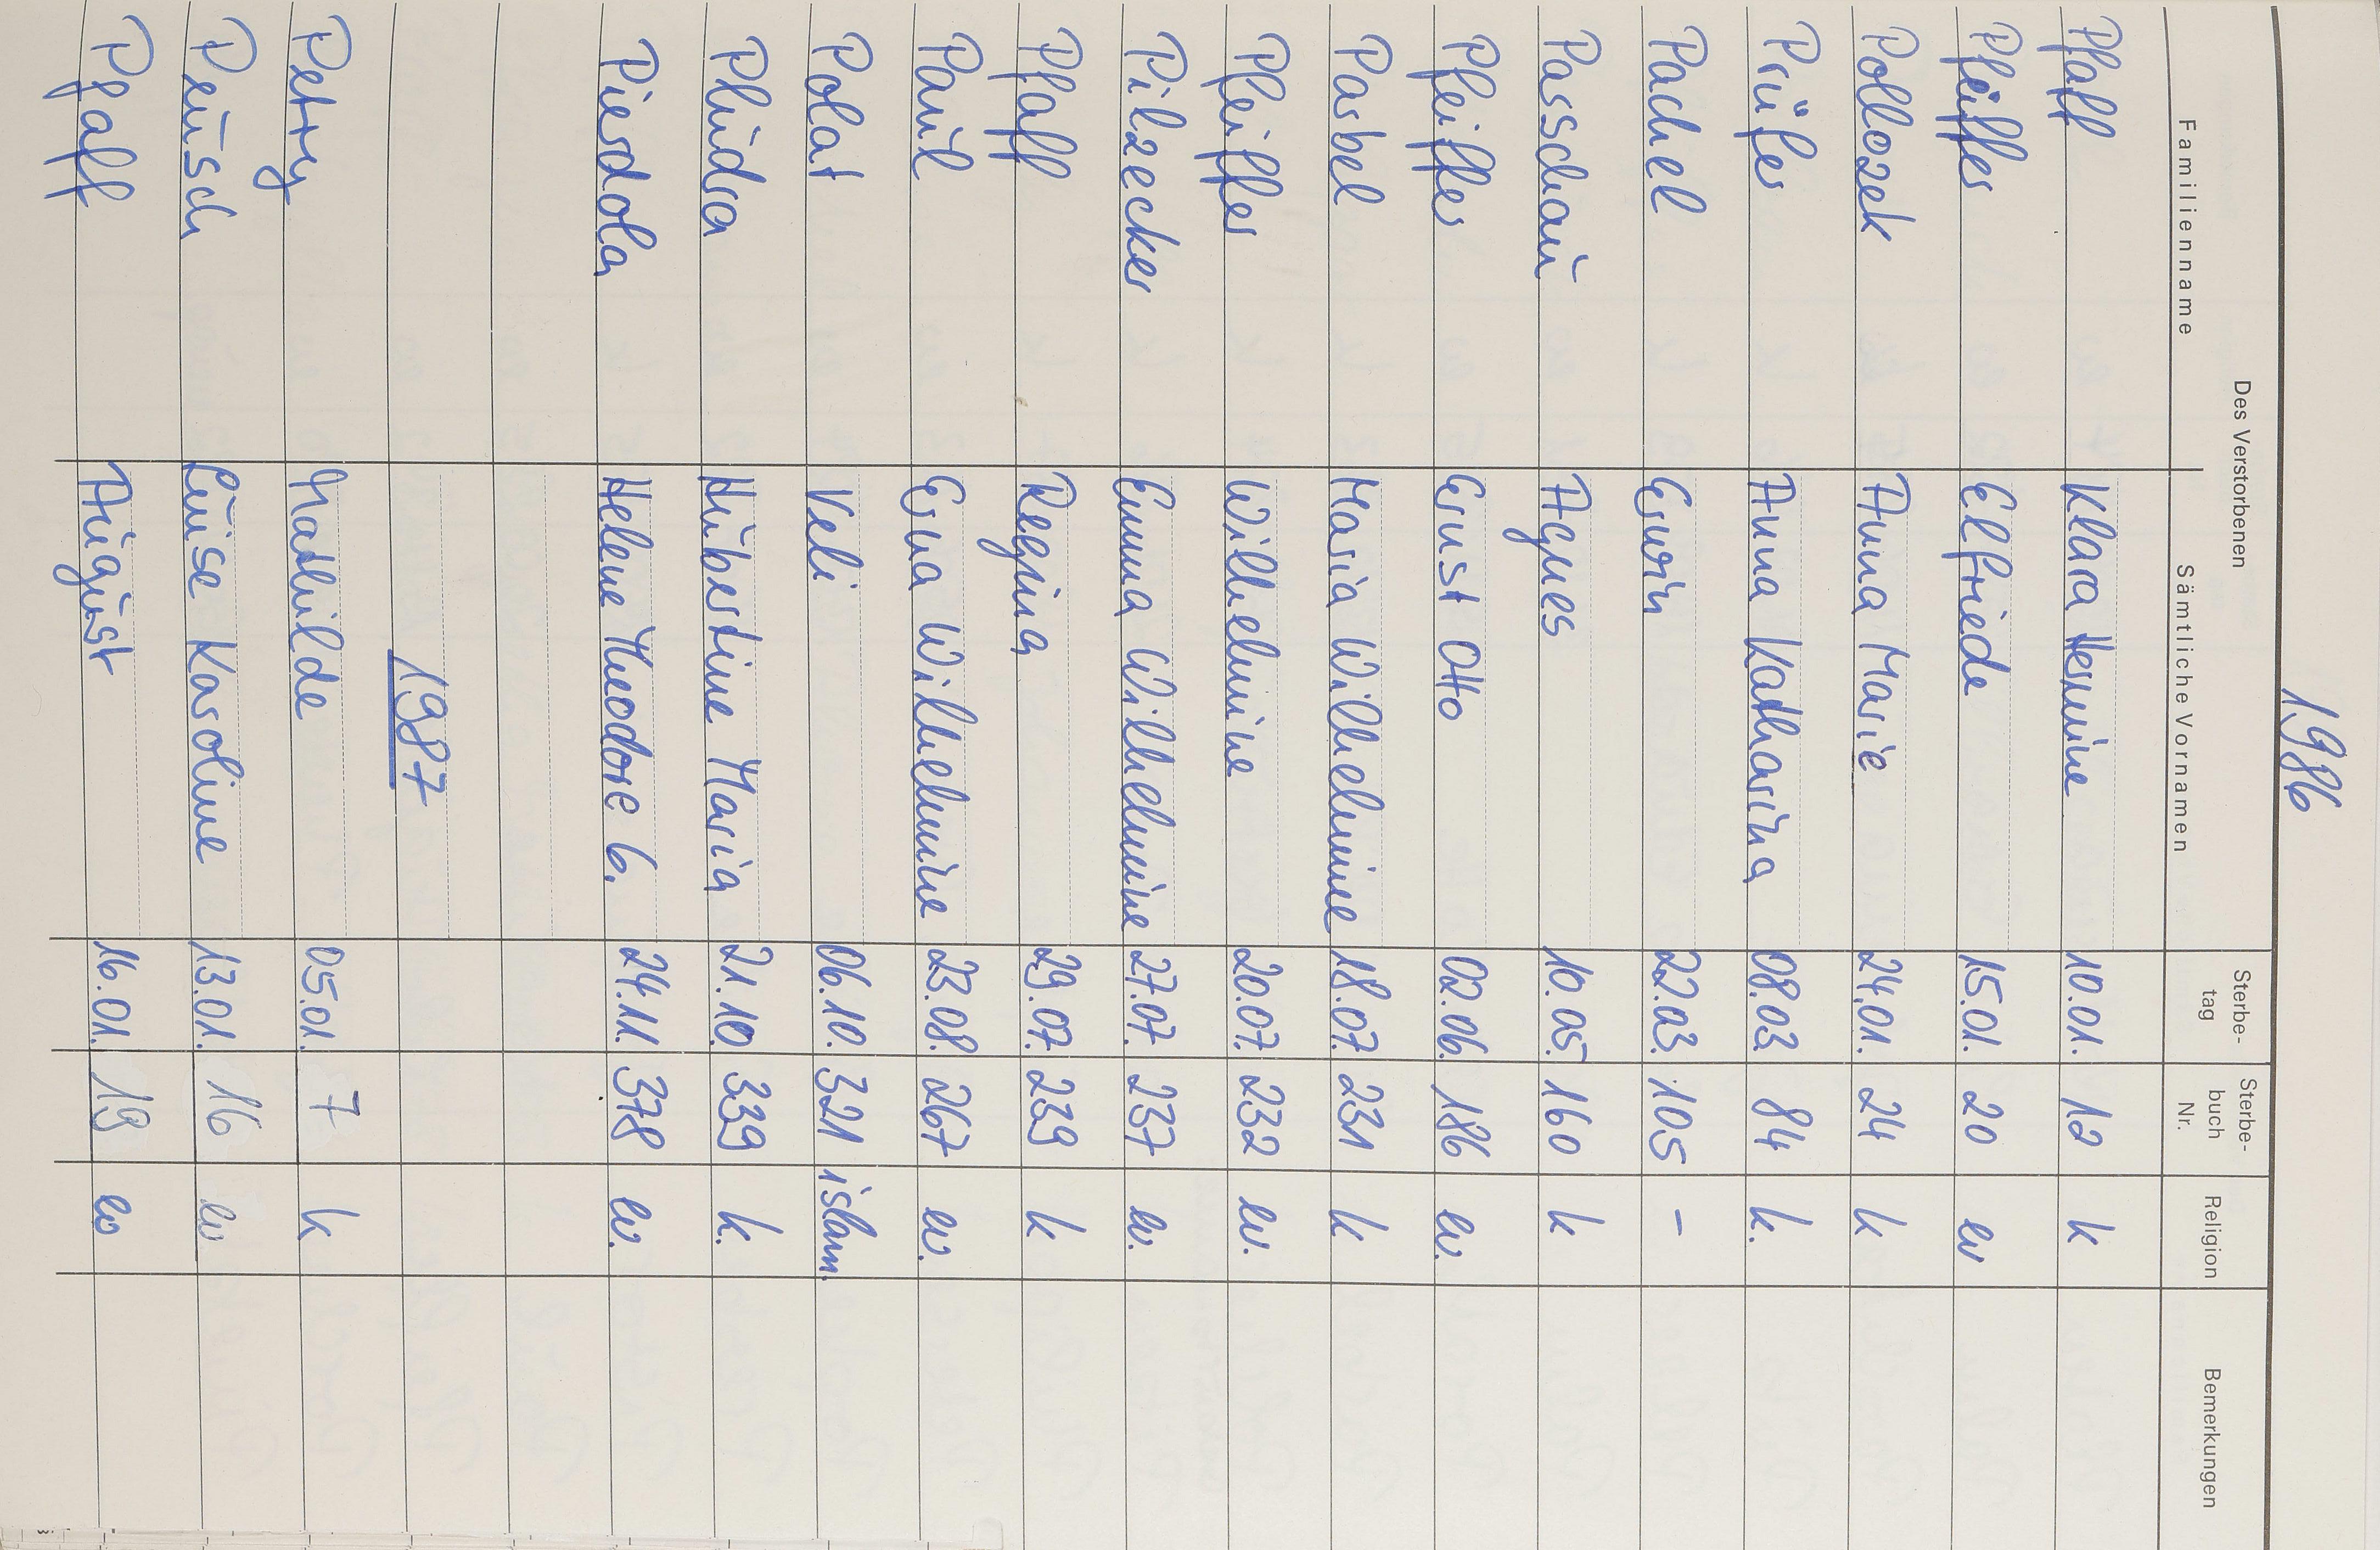 1986
Des Verstorbenen
Familienname Sämtliche Vornamen Sterbe-tag Sterbe-buch Nr. Religion Bemerkungen
Pfaff Klara Hermine 10.01. 12 k
Pfeiffer Elfriede 15.01. 20 ev
Polloczek Anna Marie 24.01. 24 k
Prüfer Anna Katharina 08.03. 84 k.
Pachel Erwin 22.03. 105 –
Passchau Agnes 10.05. 160 k
Pfeiffer Ernst Otto 02.06. 186 ev.
Parbel Maria Wilhelmine 18.07. 231 k
Pfeiffer Wilhelmine 20.07. 232 ev.
Pilzecker Emma Wilhelmine 27.07. 237 ev.
Pfaff Regina 29.07. 239 k
Paul Erna Wilhelmine 23.08. 267 ev.
Polat Veli 06.10. 321 islam.
Phluda Hubertine Maria 21.10. 339 k.
Pierdola Helene Theodore G. 24.11. 378 ev.
1987
Petry Mathilde 05.01. 7 k
Peusch Luise Karoline 13.01. 16 ev
Pfaff August 16.01. 19 ev